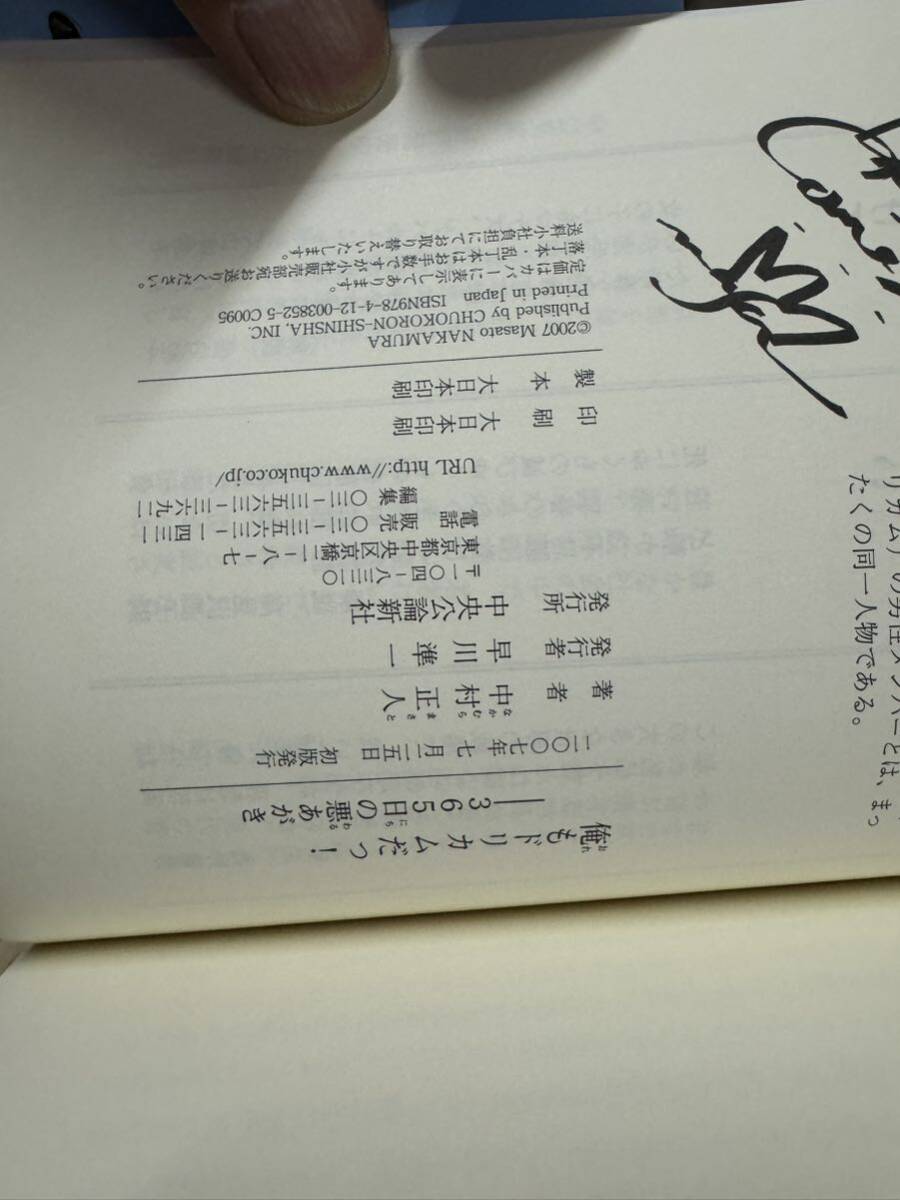 リカム）の男性メンバーとは、まっ
たくの同一人物である。
俺もドリカムだっ！
おれ
——365日の悪あがき
にち わる
二〇〇七年七月二五日 初版発行
著者 中村正人
なかむらまさと
発行者 早川準一
発行所 中央公論新社
〒一〇四-八三二〇
東京都中央区京橋二-八-七
電話 販売 〇三-三五六三-一四三一
編集 〇三-三五六三-三六九二
URL http://www.chuko.co.jp/
印刷 大日本印刷
製本 大日本印刷
©2007 Masato NAKAMURA
Published by CHUOKORON-SHINSHA, INC.
Printed in Japan ISBN978-4-12-003852-5 C0095
定価はカバーに表示してあります。
落丁本・乱丁本はお手数ですが小社販売部宛お送りください。
送料小社負担にてお取り替えいたします。